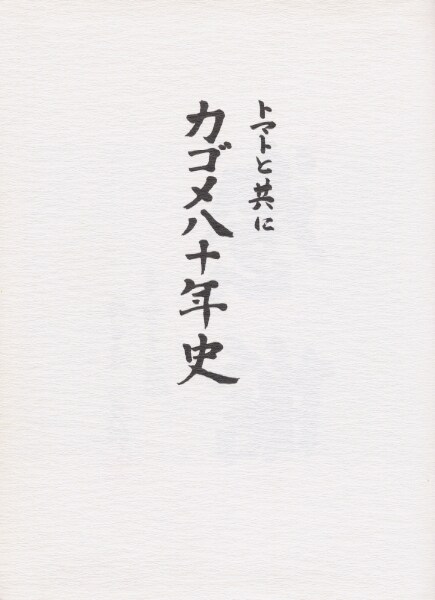 トマトと共に
カゴメ八十年史